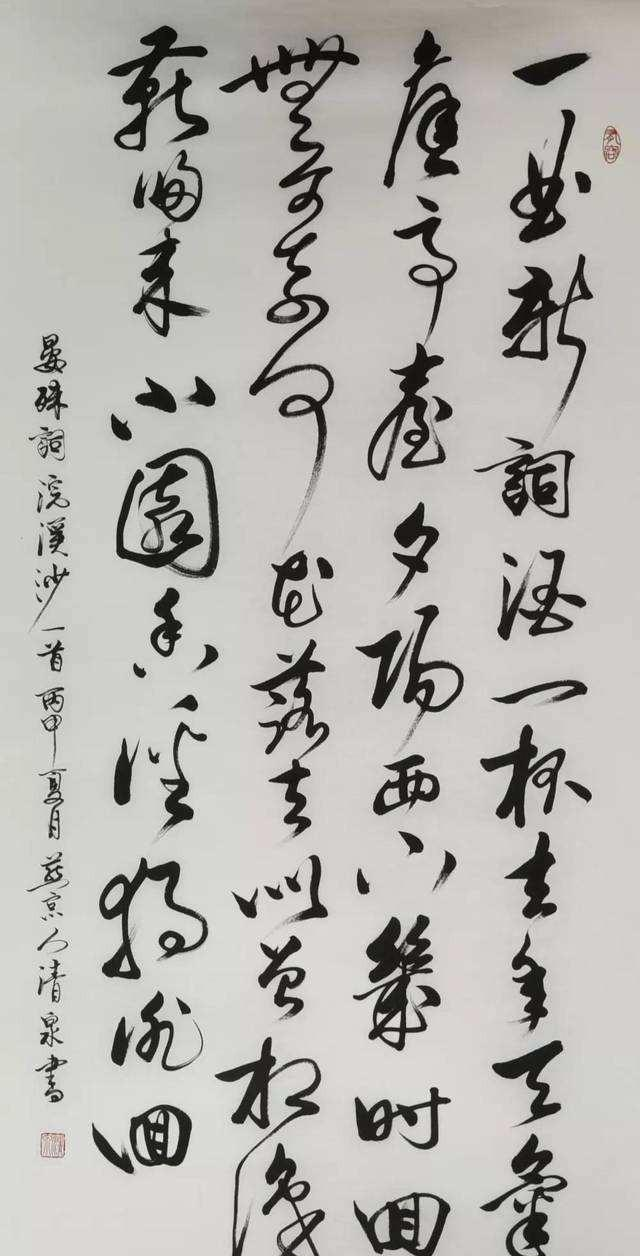 一曲新詞酒一杯去年天氣
舊亭臺夕陽西下幾時回
無可奈何花落去似曾相識
燕歸來小園香徑獨徘徊
晏殊詞浣溪沙一首丙申夏月燕京人清泉書